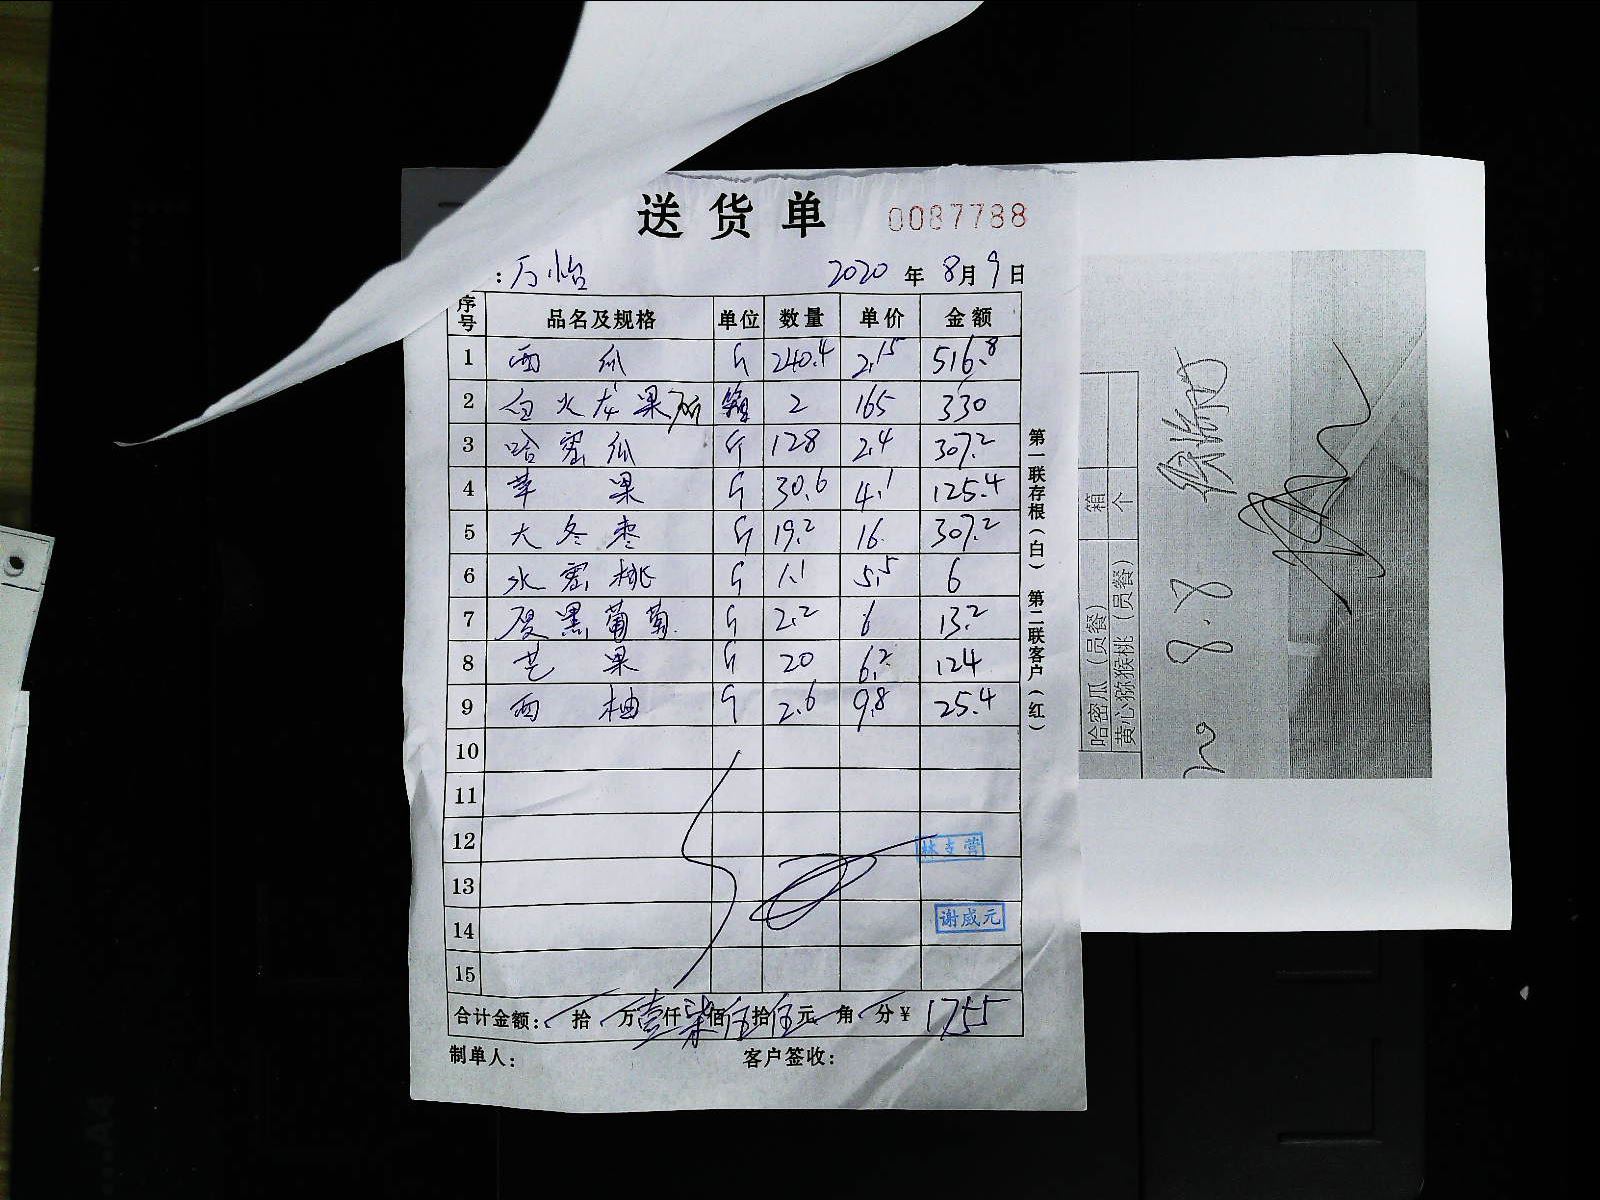 送货单 0087788
：万怡 2020 年 8月9日
序号 品名及规格 单位 数量 单价 金额
1 西瓜 斤 240.4 2.15 516.8
2 白火龙果 箱 2 165 330
3 哈密瓜 斤 128 2.4 307.2
4 苹果 斤 30.6 4.1 125.4
5 大冬枣 斤 19.2 16 307.2
6 水密桃 斤 1.1 5.5 6
7 夏黑葡萄 斤 2.2 6 13.2
8 芒果 斤 20 6.2 124
9 西柚 斤 2.6 9.8 25.4
10
11
12
13
14
15
谢威元
合计金额： 拾 万壹仟柒佰伍拾伍元 角 分¥ 1755
制单人： 客户签收：
第一联存根（白） 第二联客户（红）
箱
个
哈密瓜（员餐）
黄心猕猴桃（员餐）
8.8
A4